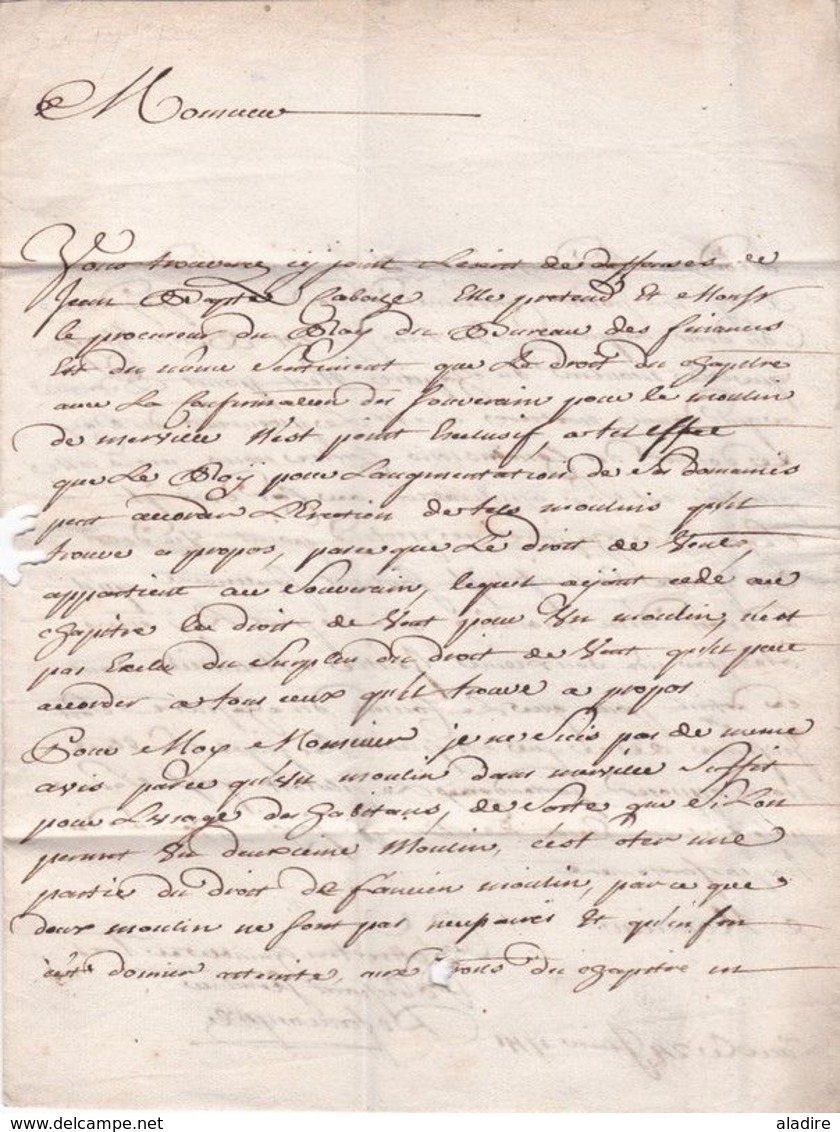 Monsieur
Vous trouverez cy joint l'Escrit de deffenses de
Jean Bapte Caboche Elle pretend Et Monsr
le procureur du Roy du Bureau des finances
Est du même Sentiment que Le droit du chapitre
avec La Confirmation du Souverain pour le moulin
de merville N'est point Exclusif, a tel effet
que Le Roÿ pour Laugmentation de Ses domaines
peut accorder L'Erection de tels moulins qu'il
trouve a propos, parce que Le droit de Vent,
appartient au Souverain, lequel aÿant cedé au
chapitre le droit de Vent pour Un moulin, n'est
pas Exclu du Surplus du droit de Vent qu'il peut
accorder a tous ceux qu'il trouve a propos
Pour Moy Monsieur je ne Suis pas de meme
avis parce qu'un moulin dans merville Suffit
pour L'usage des habitans, de Sorte que Si Lon
permet Un deuxieme Moulin, c'est oter une
partie du droit de l'ancien moulin, parce que
deux moulin ne Sont pas necessaires Et qu'enfin
c'est donner atteinte, aux droits du chapitre
aladire
www.delcampe.net